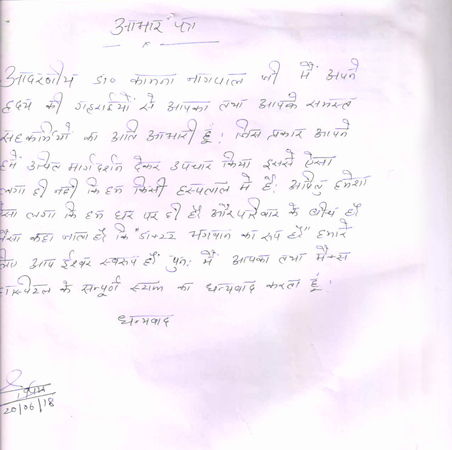 आभार पत्र
आदरणीय डा० कामना नागपाल जी मैं अपने
हृदय की गहराईयों से आपका तथा आपके समस्त
सहकर्मियों का अति आभारी हूं। जिस प्रकार आपने
हमें उचित मार्गदर्शन देकर उपचार किया इससे ऐसा
लगा ही नहीं कि हम किसी हस्पताल में हैं। अपितु हमेशा
ऐसा लगा कि हम घर पर ही हैं और परिवार के बीच हैं
जैसा कहा जाता है कि "डाक्टर भगवान का रूप हैं" हमारे
लिए आप ईश्वर स्वरूप हैं पुनः मैं आपका तथा
के सम्पूर्ण स्टाफ का धन्यवाद करता हूं।
धन्यवाद
20/06/18